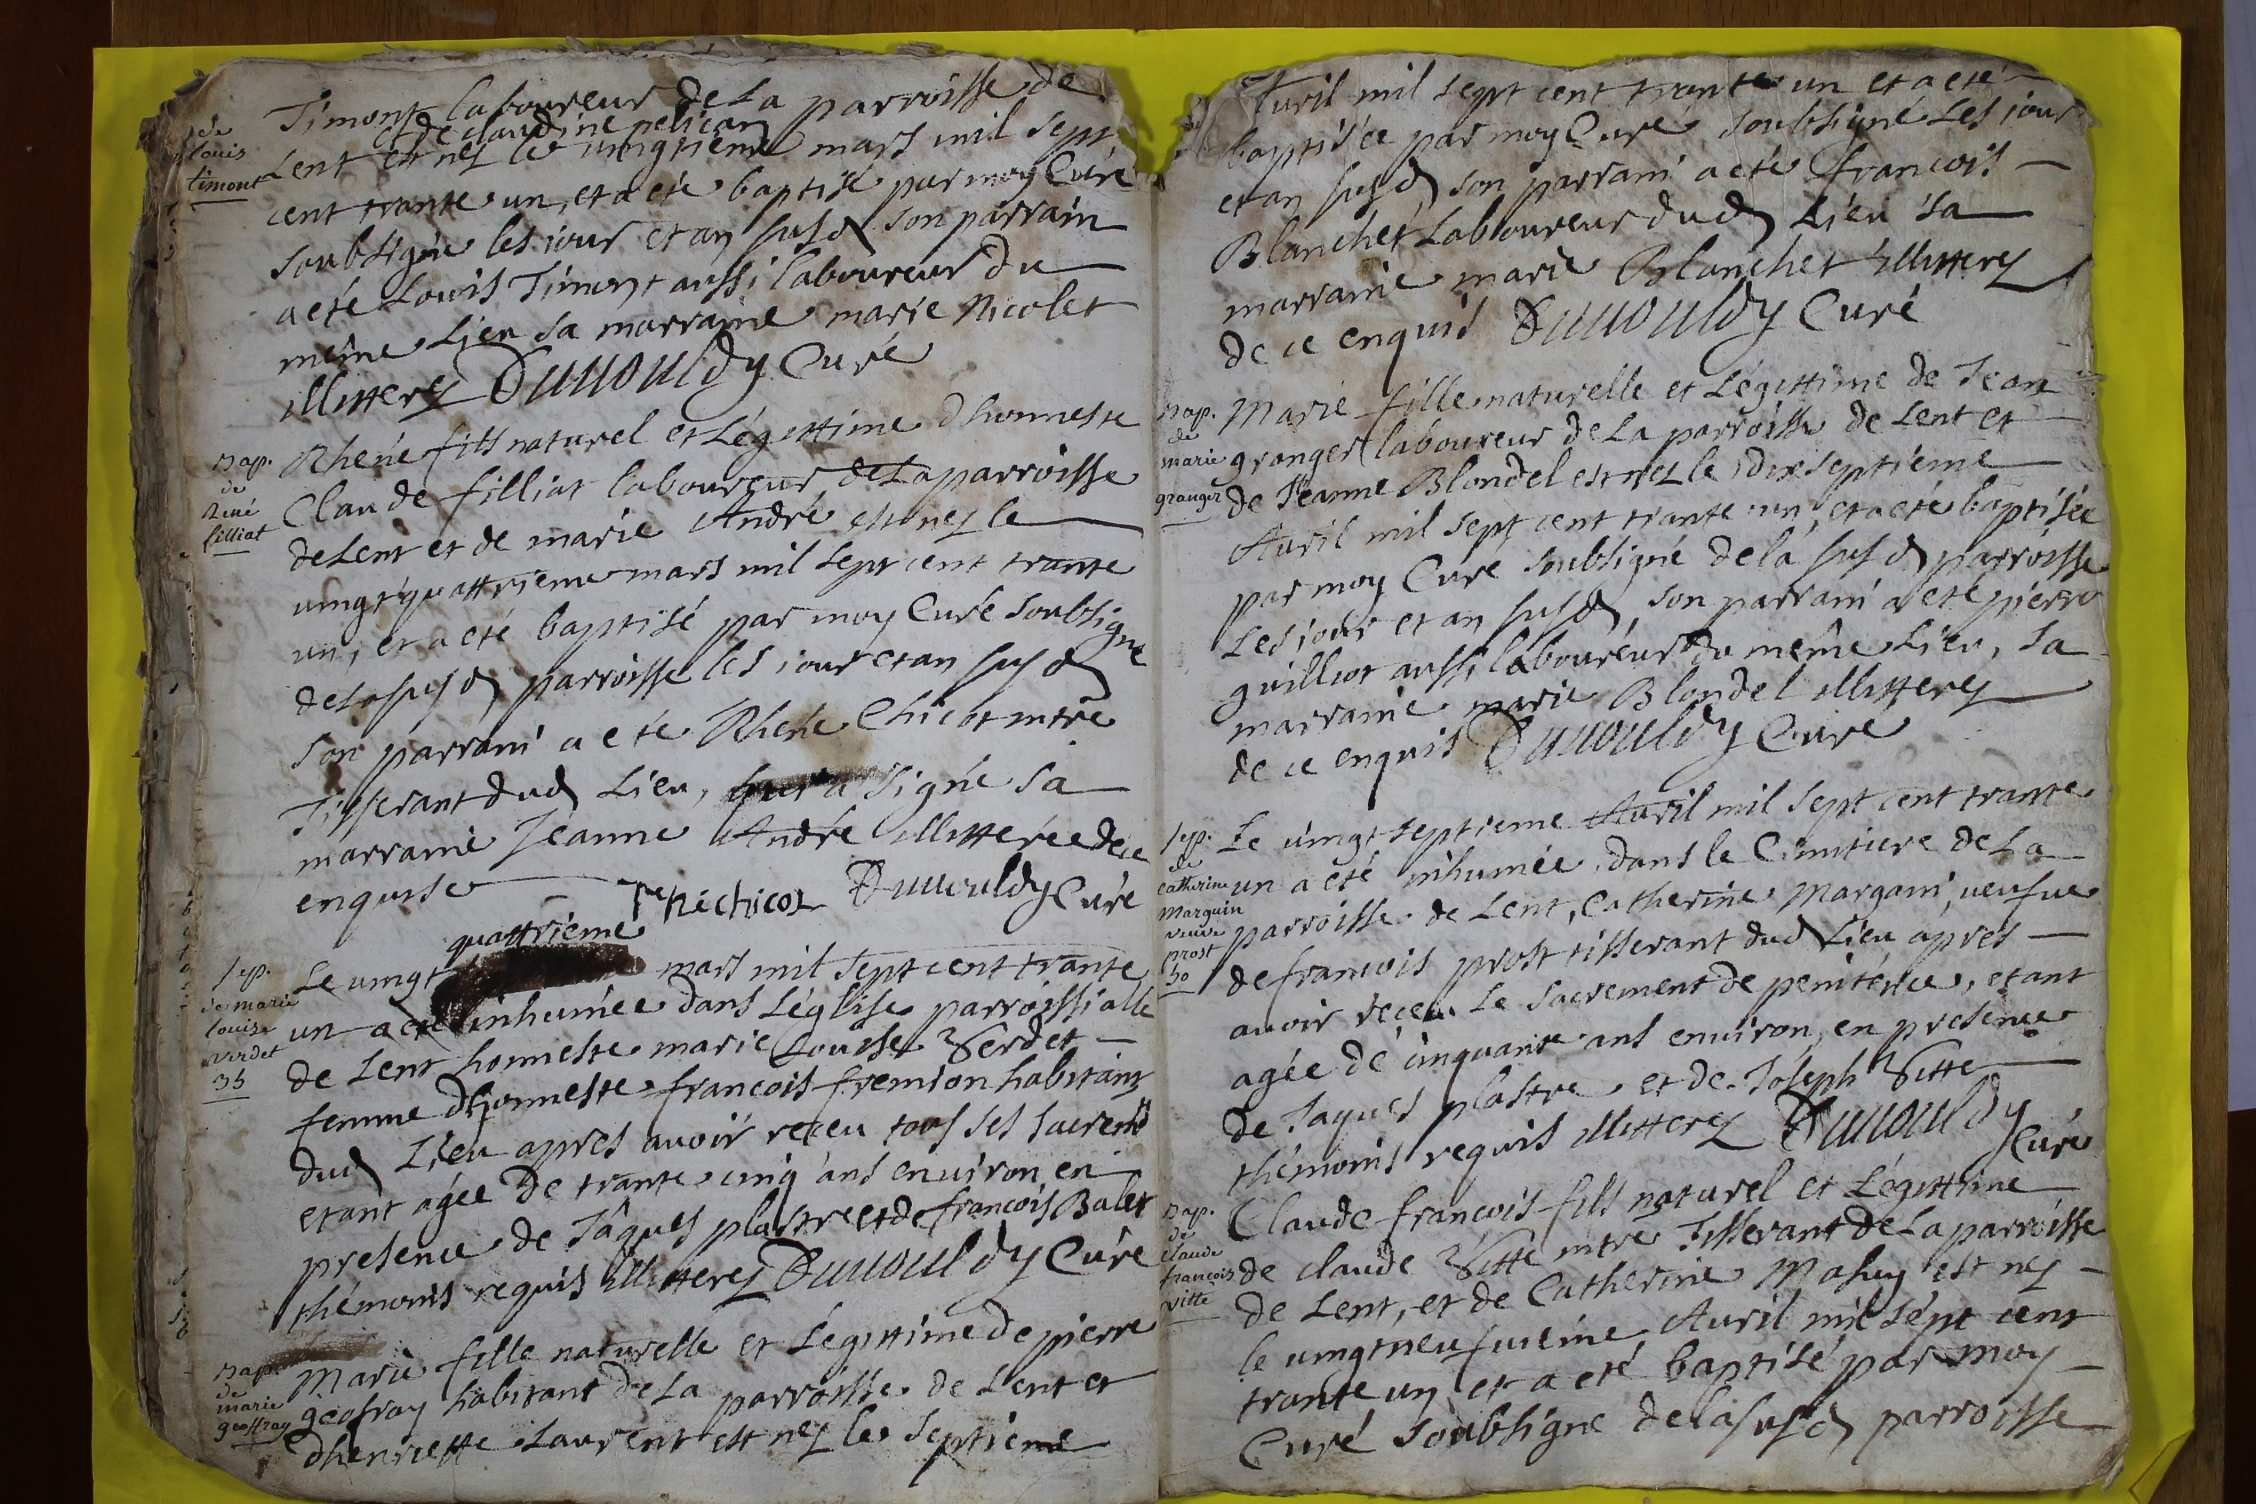 de
louis
timont
Timont laboureur de La parroisse de
et de claudine pelican
Lent est nez le vingtieme mars mil sept
cent trante un, et a eté baptisé par moy Curé
soubsigné les jour et an susd son parrain
a eté Louis Timont aussi laboureur du
meîme Lieu sa marraine marie Nicolet
illitterez Duuouldy Curé
Bap.
de
René
filliat
Rhené fils naturel et Légittime dhonneste
Claude filliat laboureur de La parroisse
de Lent et de marie André est nez le
vingt quattrieme mars mil sept cent trante
un, et a eté baptisé par moy Curé soubsigné
de La susd parroisse les jour et an susd
son parrain a eté Rhené Chicot mtre
Tisserant dud Lieu, qui a signé sa
marraine Jeanne André illitterée de ce
enquise Rhé chicot Duuouldy Curé
sep.
de marie
louise
verdet
35
quattrieme
Le vingt mars mil sept cent trante
un a eté inhumée dans L'église parroissialle
de Lent honneste marie Louise Verdet
femme dhonneste francois fremion habitant
dud Lieu apres auoir receu tous ses sacrents
etant agée de trante cinq ans enuiron, en
presence de Jâques plastre et de francois Balet
thémoins requis illitterez Duuouldy Curé
Bap.
de
marie
geoffray
Marie fille naturelle et Légittime de pierre
geofray habitant de La parroisse de Lent et
dhenriette Laurent est nez le septieme
Auril mil sept cent trante un et a eté
baptisée par moy Curé soubsigné Les jour
et an susd son parrain a eté francois
Blanchet Laboureur dud Lieu sa
marraine marie Blanchet illitterez
de ce enquis Duuouldy Curé
Bap.
de
marie
granger
Marie fille naturelle et Légittime de Jean
granger laboureur de La parroisse de Lent et
de Jeanne Blondel est nez le dixseptieme
Auril mil sept cent trante un, et a eté baptisée
par moy Curé soubsigné de la susd parroisse
Les jour et an susd, son parrain a eté pierre
guilliot aussi laboureur du meîme Lieu, sa
marraine marie Blondel illitterez
de ce enquis Duuouldy Curé
sep.
de
catherine
marguin
veuve
prost
50
Le vingt septieme Auril mil sept cent trante
un a eté inhumée dans le Cimitiere de La
parroisse de Lent, Catherine Margain, veufue
de francois prost tisserant dud Lieu apres
auoir receu Le sacrement de penitence, etant
agée de cinquante ans enuiron, en presence
de Jaques plastre et de Joseph Vitte
thémoins requis illitterez Duuouldy
Curé
Bap.
de
claude
françois
vitte
Claude françois fils naturel et Légittime
de claude Vitte mtre Tisserant de La parroisse
de Lent, et de Catherine Mahuy est nez
le vingtneufuieme Auril mil sept cent
trante un et a eté baptisé par moy
Curé soubsigné de la susd parroisse